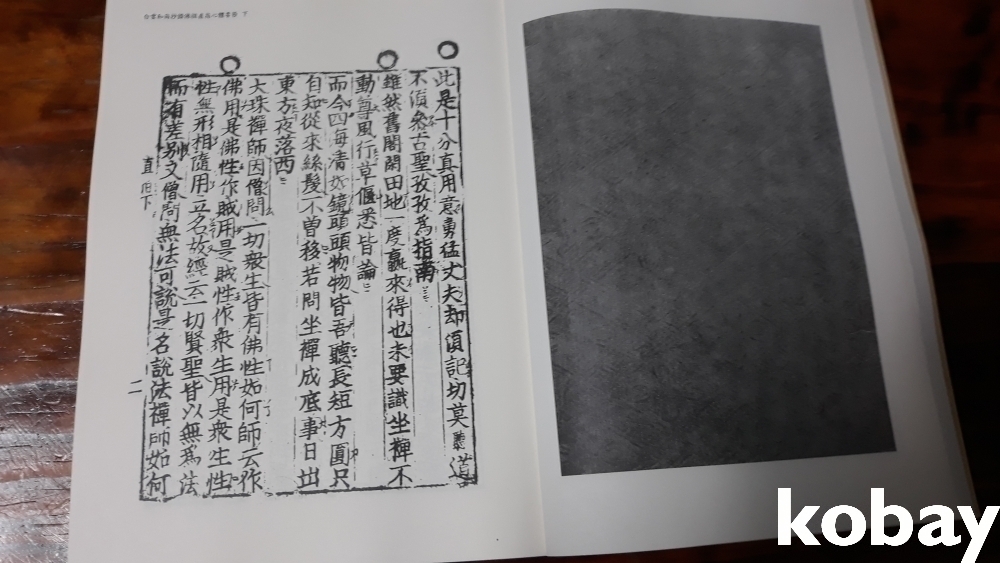 白雲和尚抄錄佛祖直指心體要節 下
此是十分真用意勇猛丈夫却須記切莫聽道
不須參古聖孜孜為指南
雖然舊閣閑田地一度贏來得也未要識坐禪不
動尊風行草偃悉皆論
而今四海清如鏡頭頭物物皆吾聽長短方圓只
自知從來絲髮不曾移若問坐禪成底事日出
東方夜落西
大珠禪師因僧問一切衆生皆有佛性如何師云作
佛用是佛性作賊用是賊性作衆生用是衆生性
性無形相隨用立名故經云一切賢聖皆以無為法
而有差別又僧問無法可說是名說法禪師如何
直 下
二
kobay